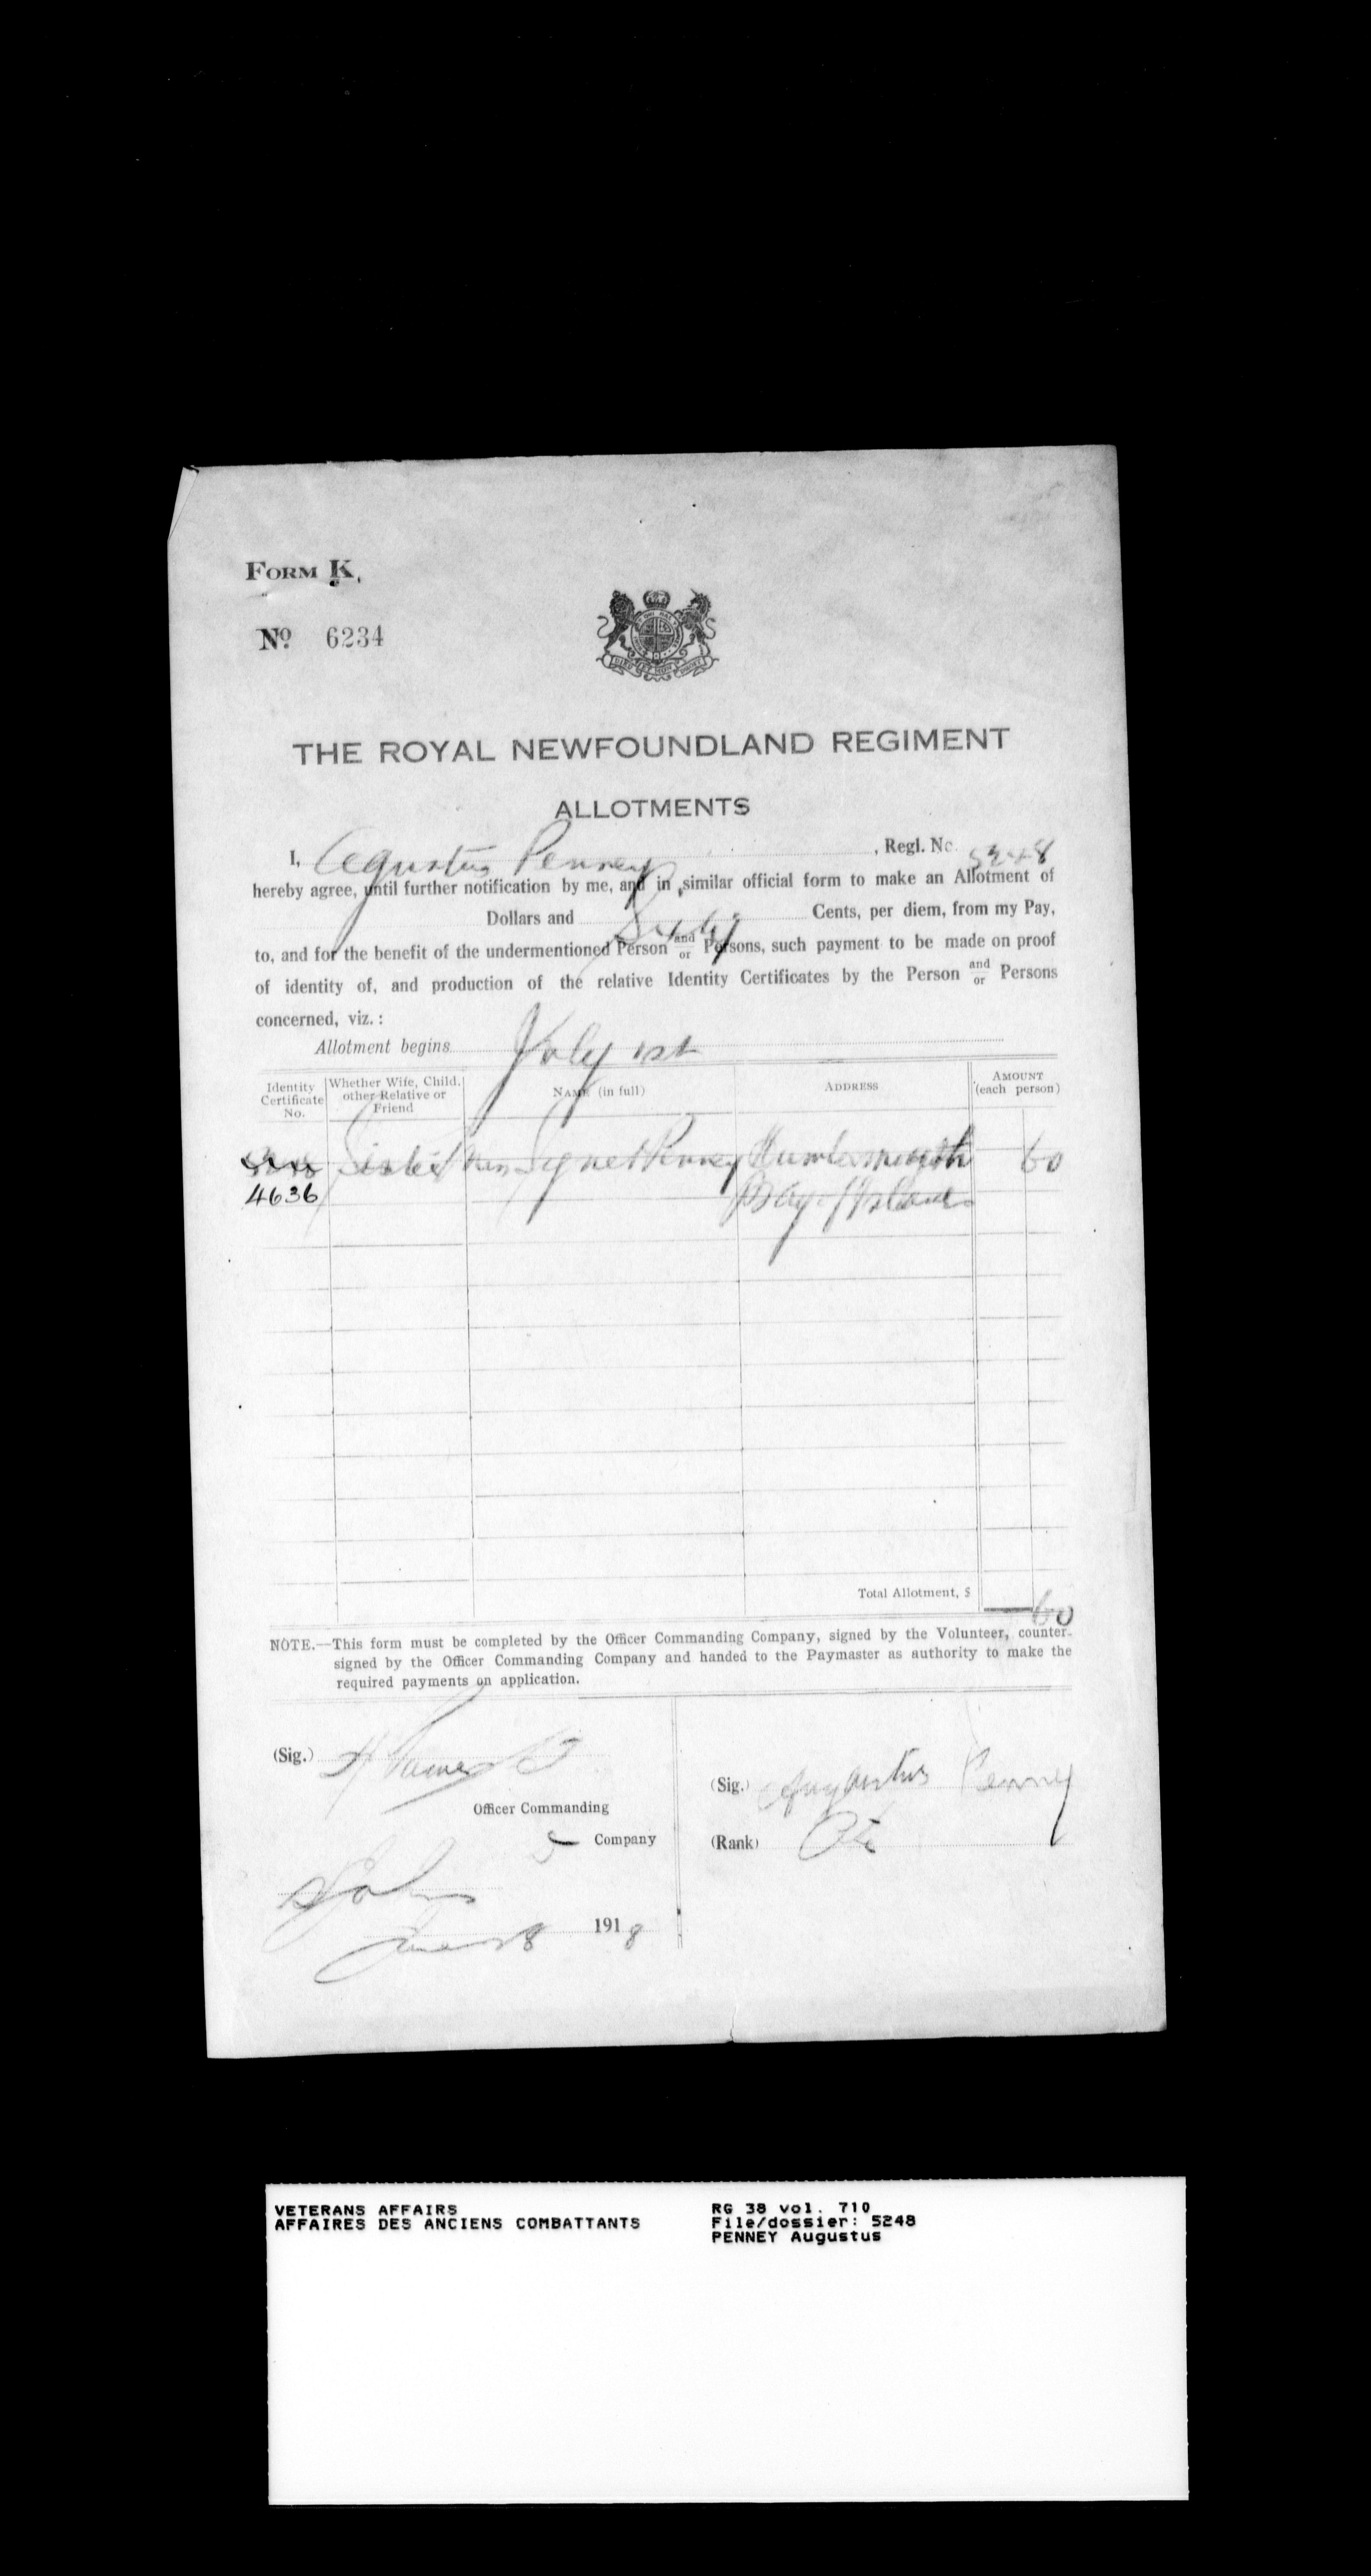 FORM K.
No 6234
THE ROYAL NEWFOUNDLAND REGIMENT
ALLOTMENTS
I, Agustus Penney, Regl. No. 5248
hereby agree, until further notification by me, and in similar official form to make an Allotment of
Dollars and Sixty Cents, per diem, from my Pay,
to, and for the benefit of the undermentioned Person and/or Persons, such payment to be made on proof
of identity of, and production of the relative Identity Certificates by the Person and/or Persons
concerned, viz.:
Allotment begins July 1st
Identity Certificate No. Whether Wife, Child, other Relative or Friend NAME (in full) ADDRESS AMOUNT (each person)
Sister Penney Humbermouth 60
4636 Bay of Islands
Total Allotment, $ 60
NOTE.—This form must be completed by the Officer Commanding Company, signed by the Volunteer, counter-
signed by the Officer Commanding Company and handed to the Paymaster as authority to make the
required payments on application.
(Sig.)
Officer Commanding
Company
St Johns
June 28 1918
(Sig.) Augustus Penney
(Rank) Pte
VETERANS AFFAIRS RG 38 vol. 710
AFFAIRES DES ANCIENS COMBATTANTS File/dossier: 5248
PENNEY Augustus